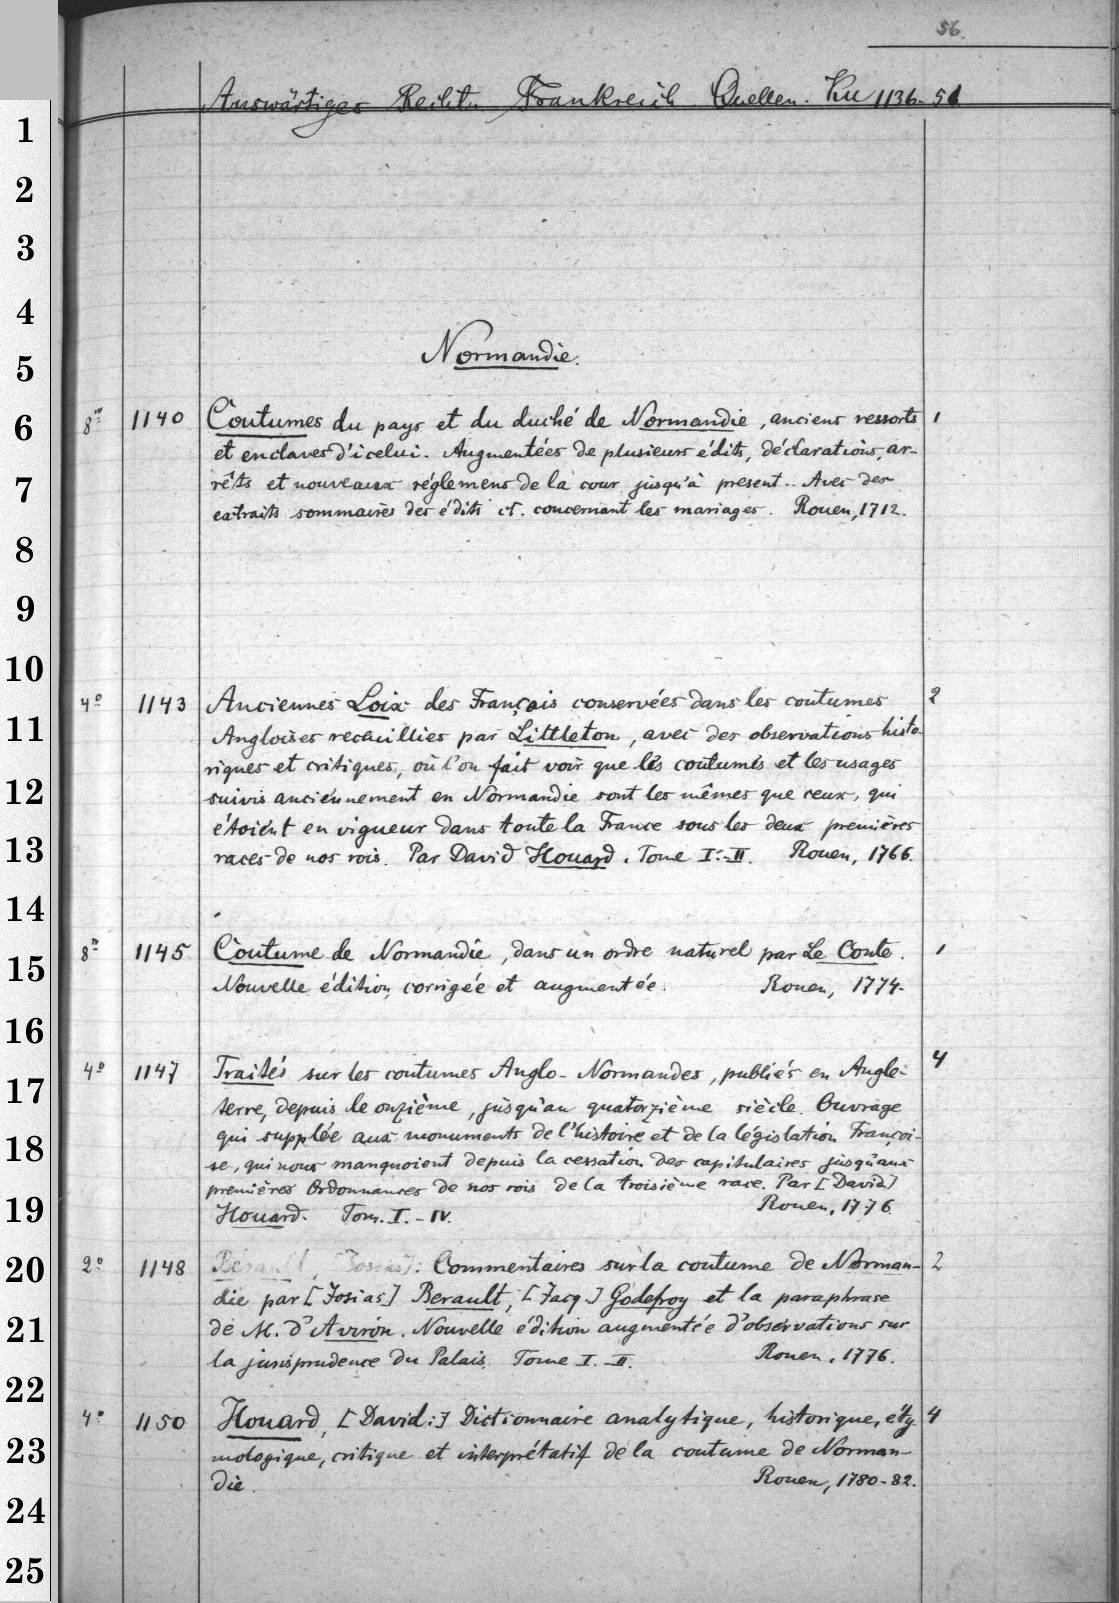 56.
Auswärtiges Recht. Frankreich Quellen. Ku 1136-51
1
2
3
4
Normandie.
5
6
8° 1140 Coutumes du pays et du duché de Normandie, anciens ressorts 1
et enclaves d'icelui. Augmentées de plusieurs édits, déclarations, ar-
7
rêts et nouveaux réglemens de la cour jusqu'à present.. Avec des
extraits sommaires des édits et. concernant les mariages. Rouen, 1712.
8
9
10
4° 1143 Anciennes Loix des Français conservées dans les coutumes 2
11
Angloises recueillies par Littleton, avec des observations histo-
riques et critiques, où l'on fait voir que les coutumes et les usages
12
suivis anciennement en Normandie sont les mêmes que ceux, qui
étoient en vigueur dans toute la France sous les deux premières
13
races de nos rois. Par David Houard. Tome I.-II. Rouen, 1766.
14
8° 1145 Coutume de Normandie, dans un ordre naturel par Le Conte. 1
15
Nouvelle édition corrigée et augmentée. Rouen, 1774.
16
4° 1147 Traités sur les coutumes Anglo-Normandes, publiés en Angle- 4
17
terre, depuis le onzième, jusqu'au quatorzième siècle. Ouvrage
qui supplée aux monuments de l'histoire et de la législation Françoi-
18
se, qui nous manquoient depuis la cessation des capitulaires jusqu'aux
premières Ordonnances de nos rois de la troisième race. Par [David]
19
Houard. Tom. I.-IV. Rouen, 1776.
20
2° 1148 Berault, [Josias]: Commentaires sur la coutume de Norman- 2
die par [Josias] Berault, [Jacq.] Godefroy et la paraphrase
21
de M. d'Aviron. Nouvelle édition augmentée d'observations sur
la jurisprudence du Palais. Tome I.-II. Rouen, 1776.
22
4° 1150 Houard, [David:] Dictionnaire analytique, historique, éty- 4
23
mologique, critique et interprétatif de la coutume de Norman-
die. Rouen, 1780-82.
24
25